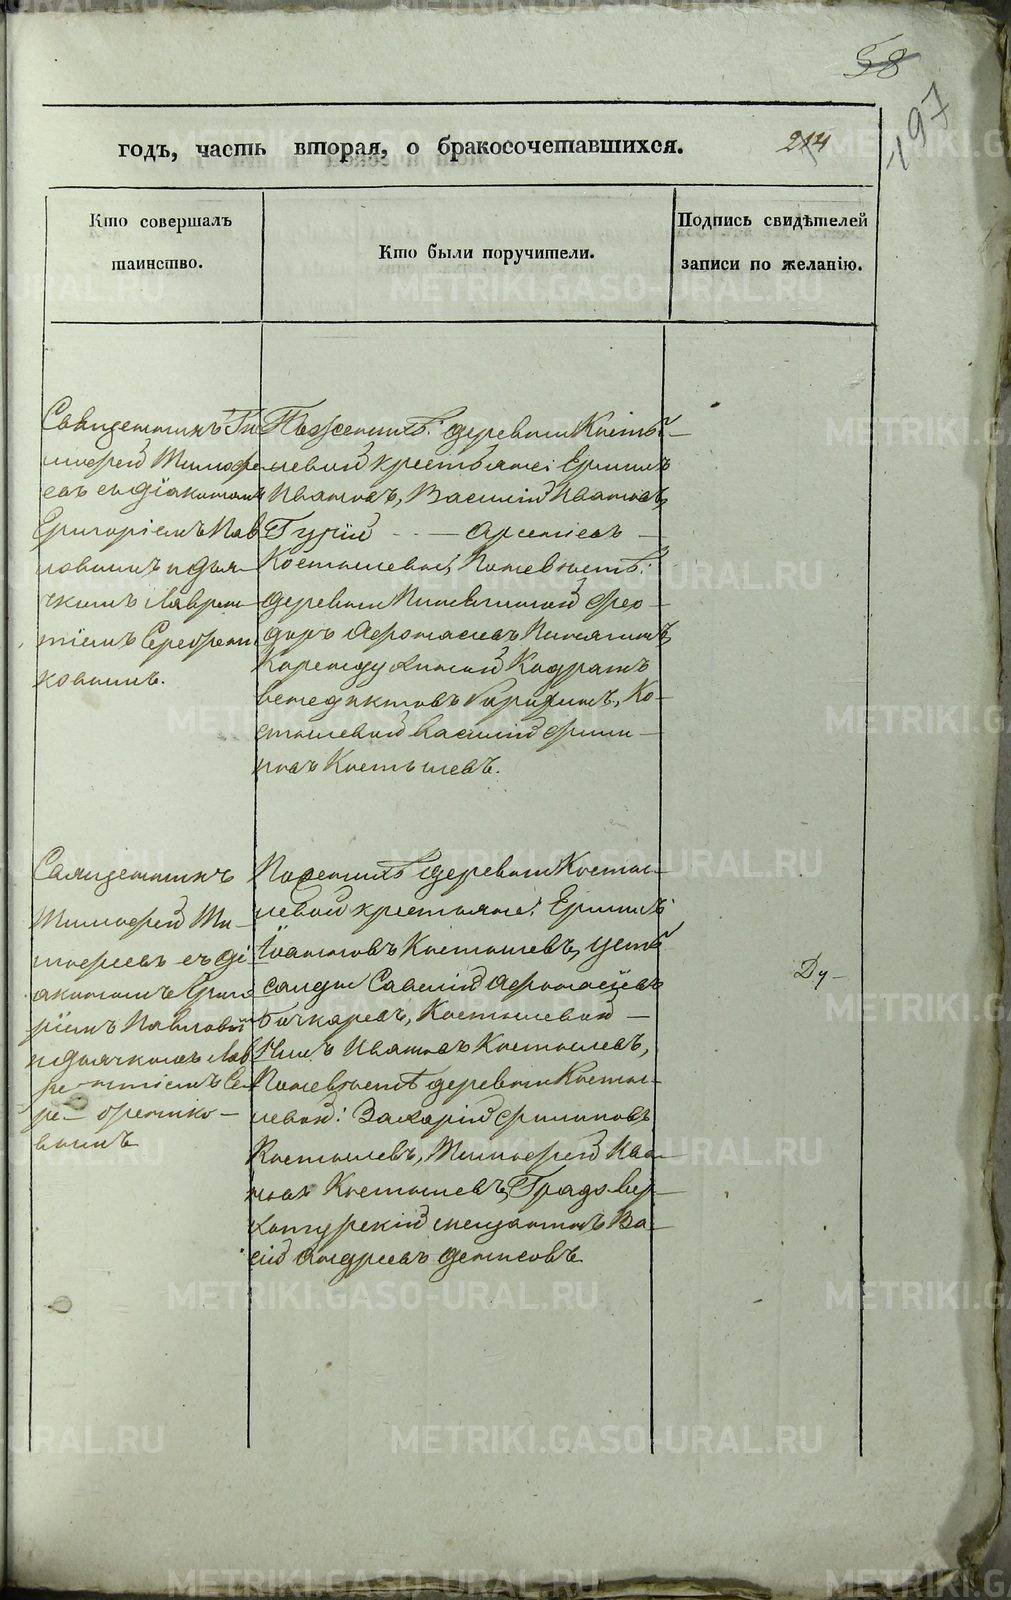 58
197
годъ, часть вторая, о бракосочетавшихся.
214
Кто совершалъ
таинство.
Кто были поручители.
Подпись свидѣтелей
записи по желанію.
Священникъ Ти
мофей Тимофе
евъ съ діакономъ
Григоріемъ Пав
ловымъ и дья
чкомъ Лаврен
тіемъ Серебрени
ковымъ.
По женихѣ: деревни Косты
левой крестьяне: Ермилъ
Ивановъ, Василій Ивановъ,
Гурій - - — Арсеніевъ —
Костылевы, По невѣстѣ:
деревни Фео-
доръ Афонасьевъ
Кондратъ
Венедиктовъ Ко-
стылевой Василій Фили-
повъ Костылевъ.
Священникъ
Тимофей Ти-
мофеевъ съ ді
акономъ Григо
ріемъ Павловы
и дьячкомъ Лав
ре-нтіемъ Се
ре-бренико-
вымъ
По женихѣ деревни Косты-
левой крестьяне: Ермилъ
Іоанновъ Костылевъ, Усть
салды Савелій Афонасьевъ
Бочкаревъ, Костылевой —
Нилъ Ивановъ Костылевъ,
По невѣстѣ деревни Косты-
левой: Захарій Филиповъ
Костылевъ, Тимофей Ива-
новъ Костылевъ, Градо Вер-
хотурскій мещанинъ Ва-
сій Андреевъ Денисовъ
Ду-
METRIKI.GASO-URAL.RU